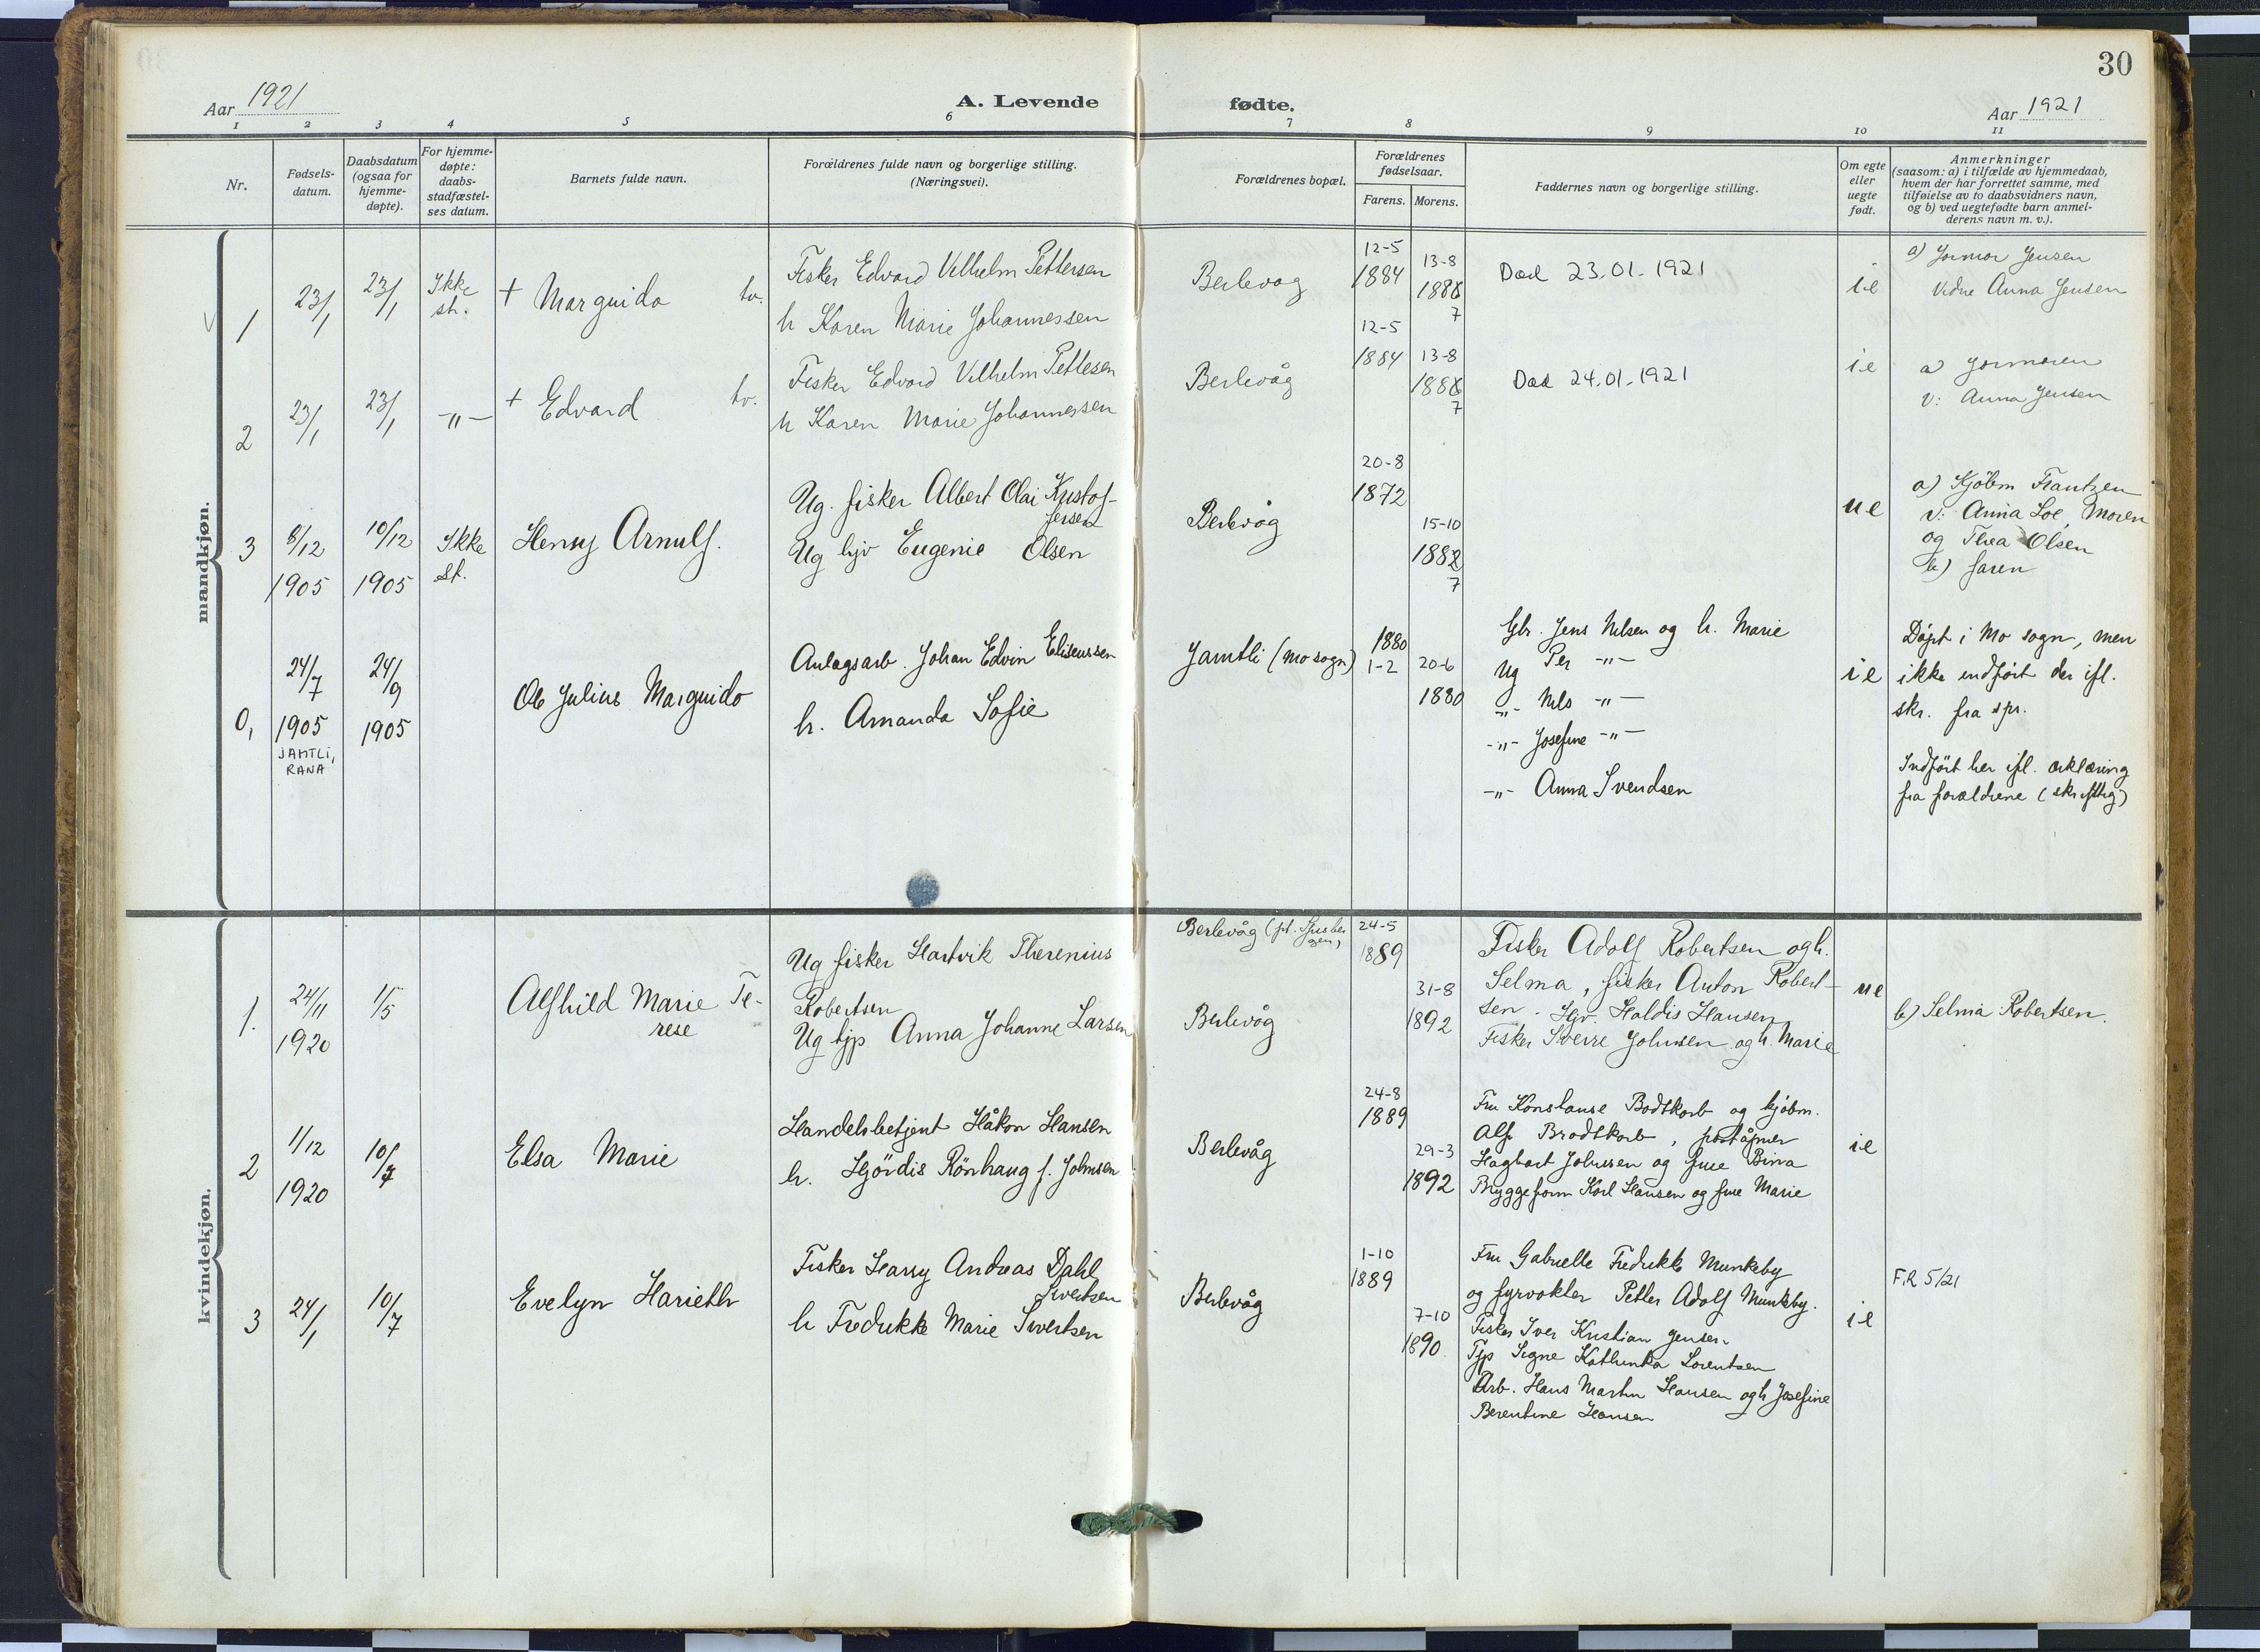 30
Aar 1921
A. Levende
fødte.
Aar 1921
1 2 3 4 5 6 7 8 9 10 11
Nr.
Fødsels-
datum.
Daabsdatum
(ogsaa for
hjemme-
døpte).
For hjemme-
døpte:
daabs-
stadfæstel-
ses datum.
Barnets fulde navn.
Forældrenes fulde navn og borgerlige stilling.
(Næringsvei).
Forældrenes bopæl.
Forældrenes
fødselsaar.
Farens. Morens.
Faddernes navn og borgerlige stilling.
Om egte
eller
uegte
født.
Anmerkninger
(saasom: a) i tilfælde av hjemmedaab,
hvem der har forrettet samme, med
tilføielse av to daabsvidners navn,
og b) ved uegtefødte barn anmel-
derens navn m. v.).
mandkjøn.
1
23/1
23/1
Ikke
st.
+ Marguido tv.
Fisker Edvard Vilhelm Pettersen
h Karen Marie Johannessen
Berlevog
12-5
1884
13-8
1886
7
Død 23.01.1921
ie
a) Jormor Jensen
Vidne Anna Jensen
2
23/1
23/1
-"-
+ Edvard tv.
Fisker Edvard Vilhelm Pettesen
h Karen Marie Johannessen
Berlevåg
12-5
1884
13-8
1886
7
Død 24.01.1921
ie
a) Jormoren
v: Anna Jensen
3
8/12
1905
10/12
1905
Ikke
st.
Henry Arnulf.
Ug. fisker Albert Olai Kristof-
fersen
Ug hjv Eugenie Olsen
Berlevåg
20-8
1872
15-10
1882
7
ue
a) Kjøbm Frantzen
v: Anna Loe, Moren
og Thea Olsen
b) faren
0,
24/7
1905
JAMTLI,
RANA
24/9
1905
Ole Julius Marguido
Anlagsarb. Johan Edvin Eliseussen
h. Amanda Sofie
Jamtli (Mo sogn)
1880
1-2
20-6
1880
Gbr. Jens Nilsen og h. Marie
Ug Per -"-
-"- Nils -"-
-"- Josefine -"-
-"- Anna Svendsen
ie
Döpt i Mo sogn, men
ikke indført der ifl.
skr. fra spr.
Indført her ifl. erklæring
fra forældrene (skriftlig)
kvindekjøn.
1.
24/11
1920
1/5
Alfhild Marie Te-
rese
Ug fisker Hartvik Therenius
Robertsen
Ug tjp Anna Johanne Larsen
Berlevåg (pt.
Berlevåg
24-5
1889
31-8
1892
Fisker Adolf Robertsen og h.
Selma, fisker Anton Robert-
sen. Hjv. Haldis Hansen
Fisker Sverre Johnsen og h. Marie
ue
b) Selma Robertsen.
2
1/12
1920
10/7
Elsa Marie
Handelsbetjent Håkon Hansen
h. Hjördis Rönhaug f. Johnsen
Berlevåg
24-8
1889
29-3
1892
Fru Konstanse Bodtkorb og kjøbm.
Alf Brodtkorb, poståpner
Hagbart Johnsen og frue Birra
Bryggeform Karl Hansen og frue Marie
ie
3
24/1
10/7
Evelyn Harieth
Fisker Harry Andreas Dahl
Sivertsen
h Fredrikke Marie Sivertsen
Berlevåg
1-10
1889
7-10
1890.
Fru Gabrielle Fredrikke Munkeby
og fyrvokter Petter Adolf Munkeby.
Fisker Iver Kristian Jensen
Tjp Signe Kathinka Lorentsen
Arb. Hans Martin Hansen og h Josefine
Berentine Hansen
ie
F.R 5/21